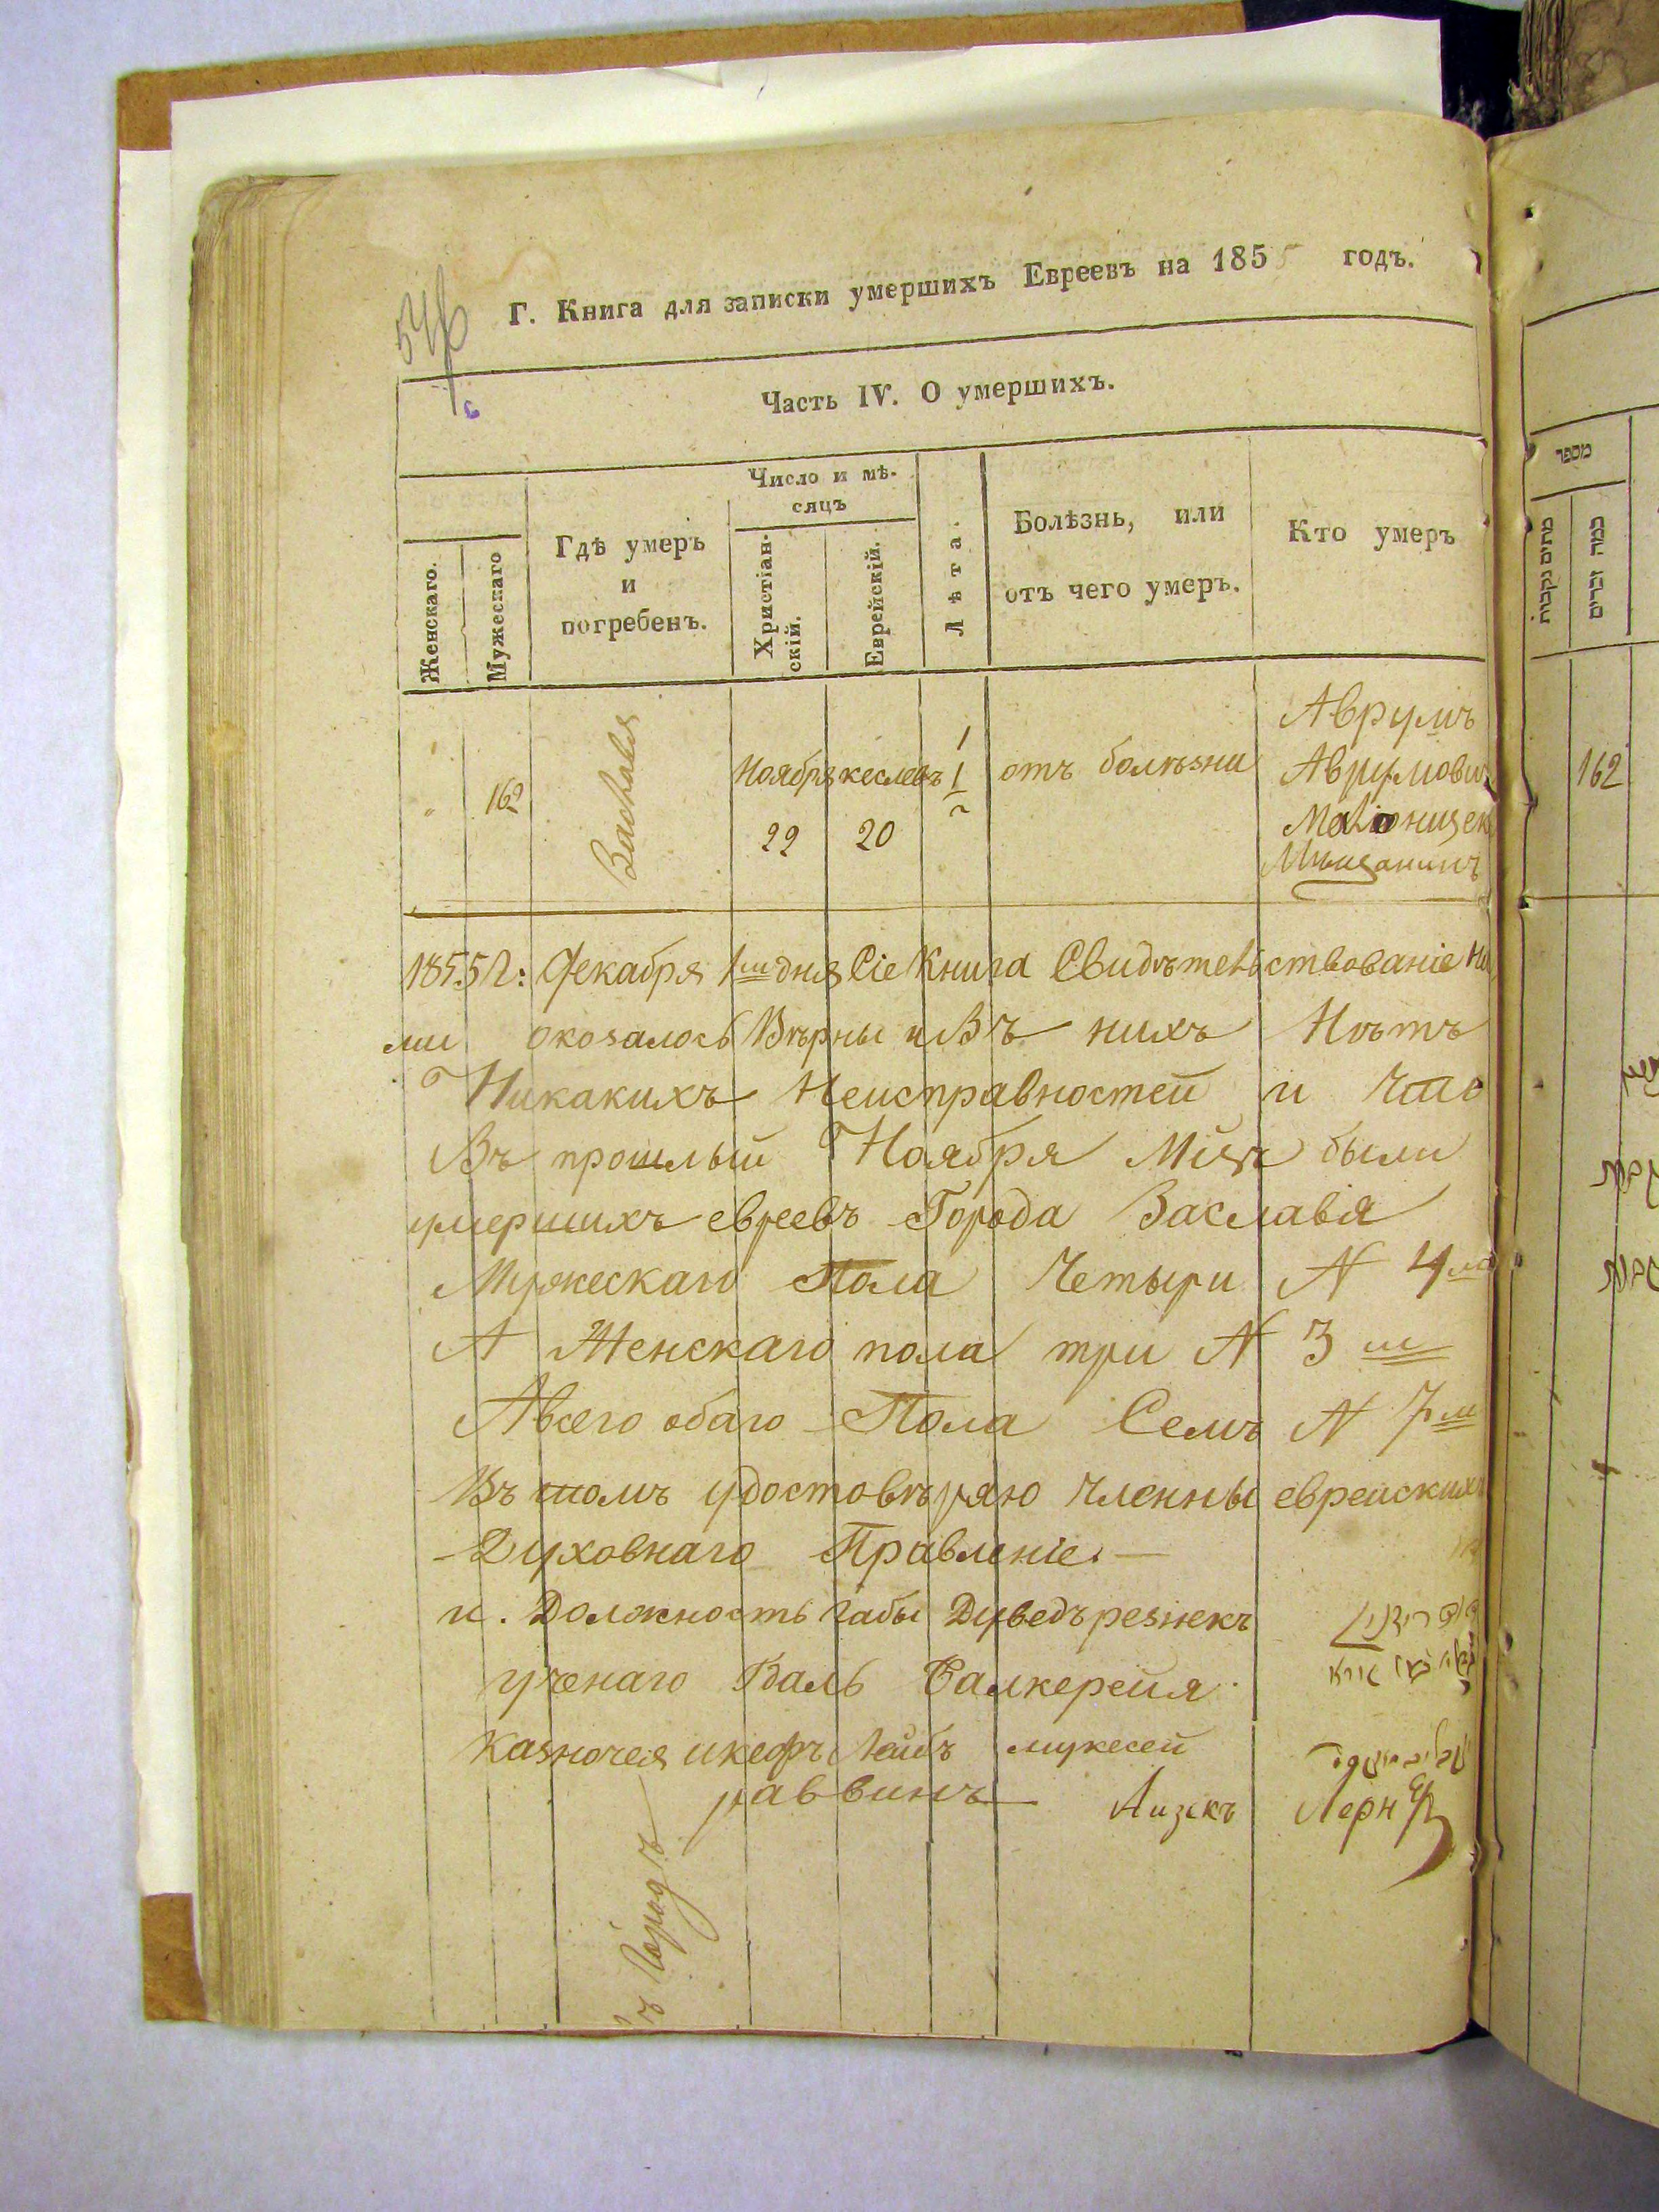 546
Г. Книга для записки умершихъ Евреевъ на 1855 годъ.
Часть IV. О умершихъ.
Женскаго.
Мужескаго
Гдѣ умеръ
и
погребенъ.
Число и мѣ-
сяцъ
Христіан-
скій.
Еврейскій.
Лѣта.
Болѣзнь, или
отъ чего умеръ.
Кто умеръ
מספר
מתים נקבות
כמה זכרים
162
Заславля
Ноября
22
кеслевъ
20
1/2
отъ болѣзни
Аврумъ
Аврумовичъ
Мѣщанинъ
162
1855 г: Декабря 1го дня Сіе Книга Свидѣтельствованіе На
ми окозалось Вѣрны и Въ нихъ Нѣтъ
Никакихъ Неисправностей и что
Въ прошлый Ноября Мцѣ были
умершихъ евреевъ Города Заславля
Мужескаго Пола Четыри N 4
А Женскаго пола три N 3
Авсего обаго Пола Семъ N 7
Въ томъ удостовѣряю Членны еврейскихъ
Духовнаго Правленіе. —
и. Должность Габы Дуведъ резнекъ
ученаго Валь
Казночея Лейбъ
раввинъ Аизекъ Лернер
Городъ